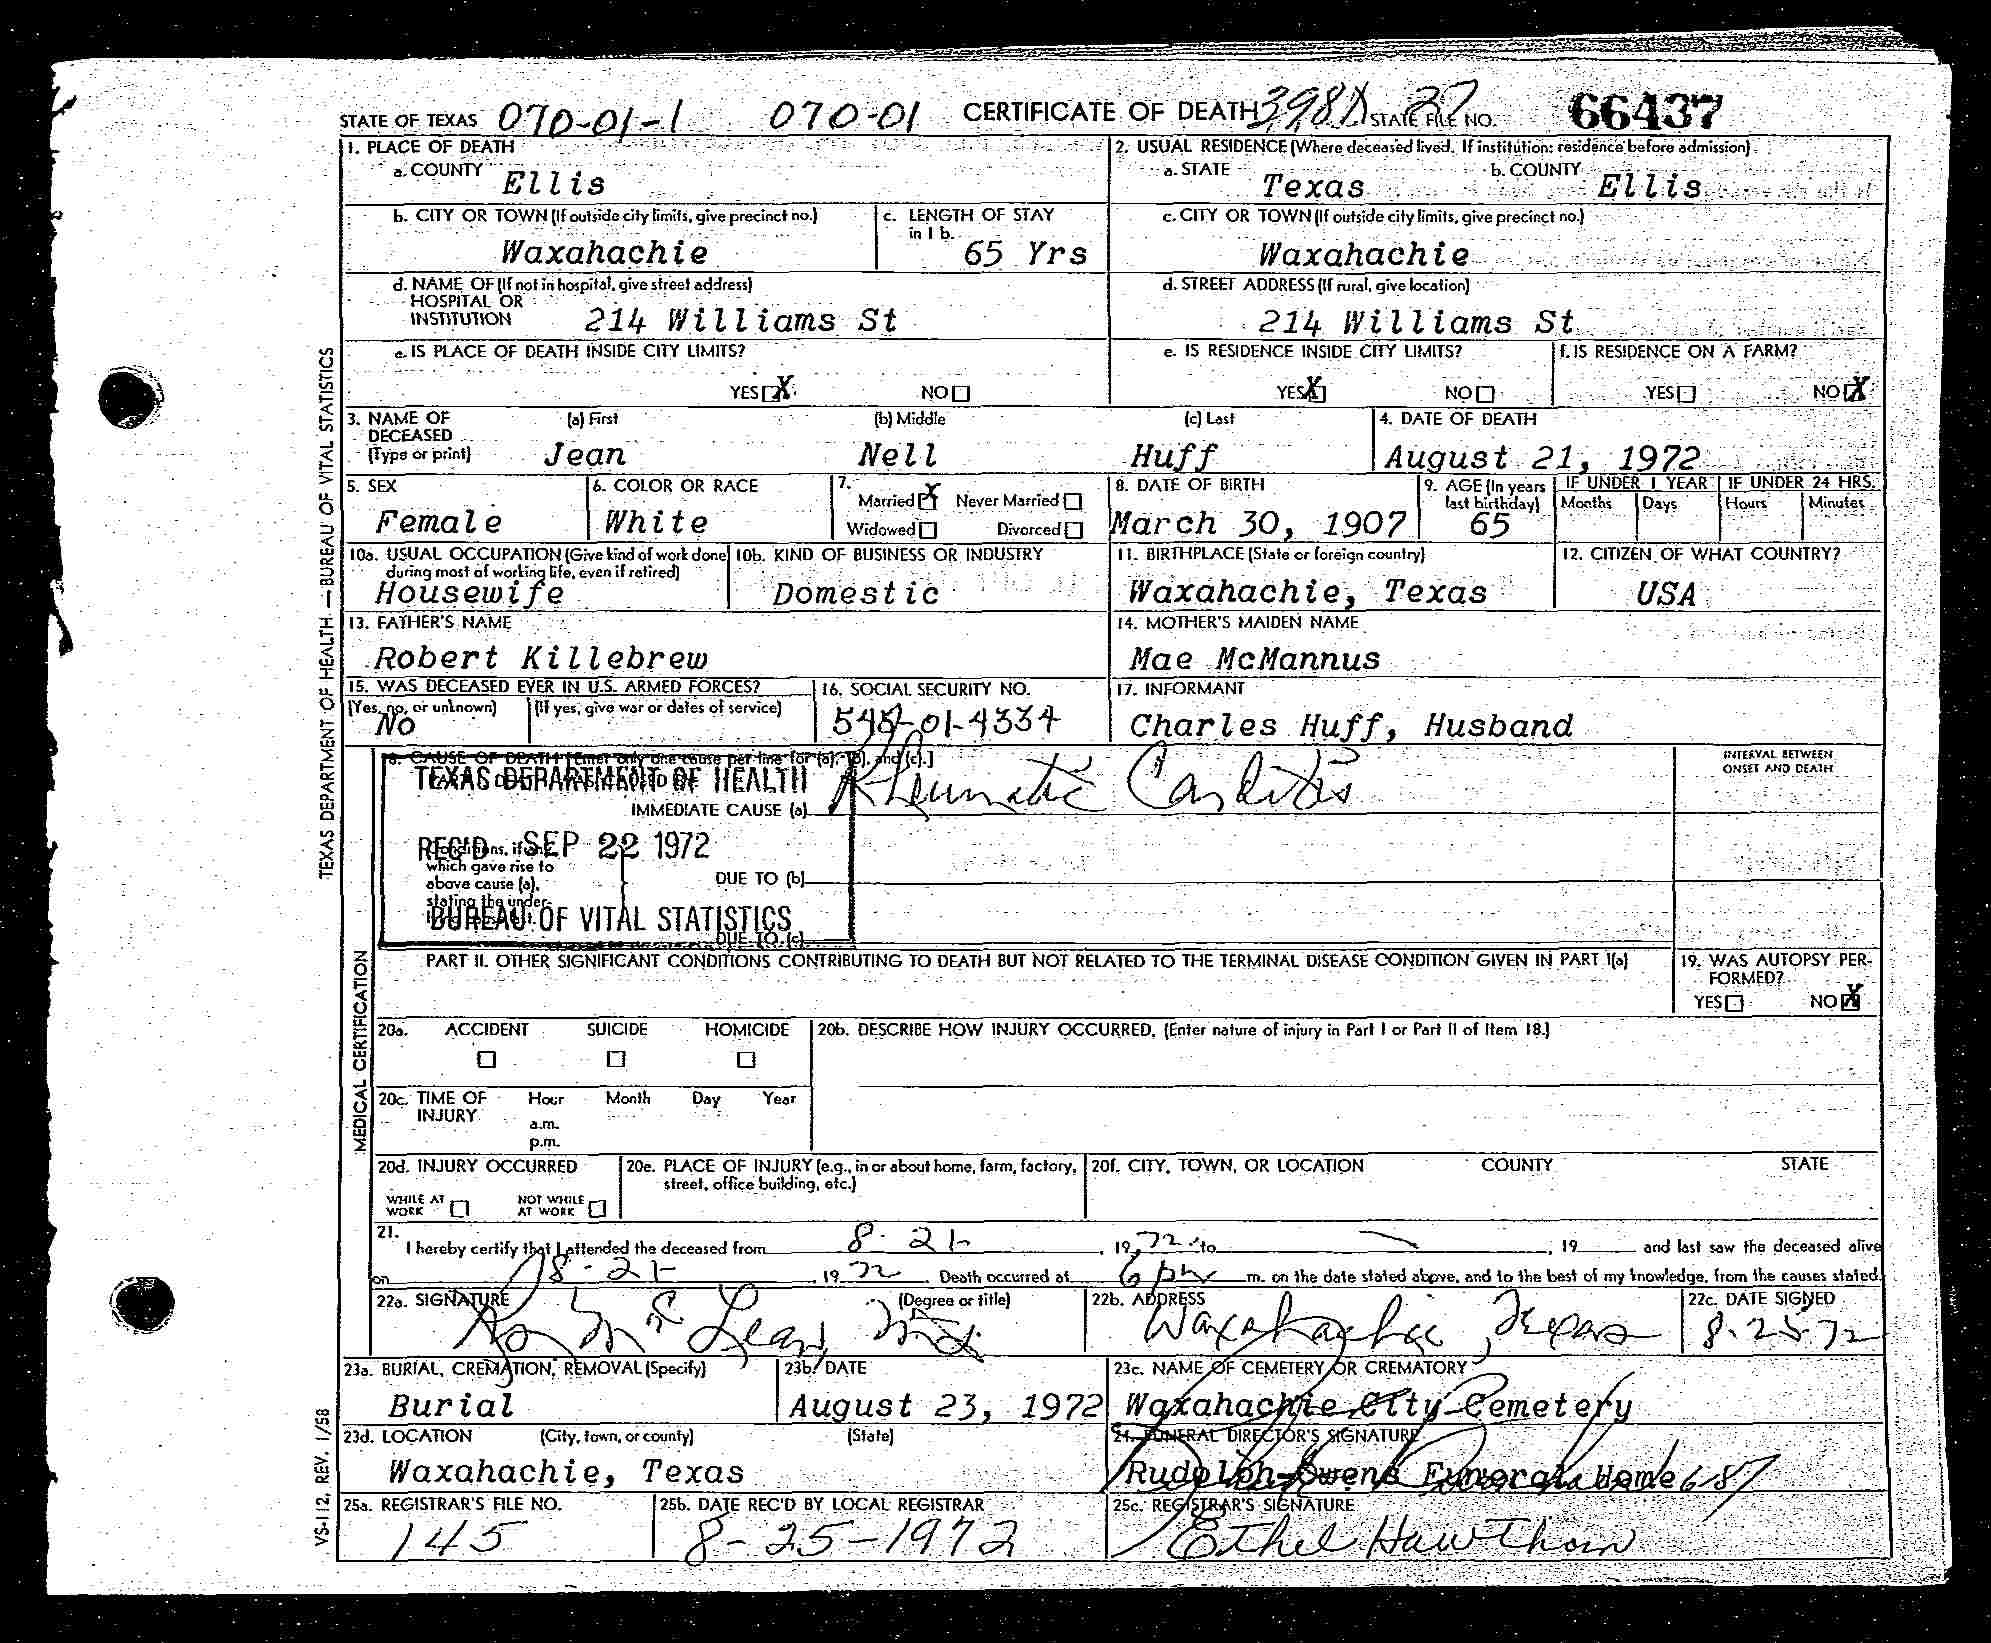 STATE OF TEXAS 070-01-1 070-01 CERTIFICATE OF DEATH 398 27 STATE FILE NO. 66437
1. PLACE OF DEATH
a. COUNTY Ellis
2. USUAL RESIDENCE (Where deceased lived. If institution: residence before admission)
a. STATE Texas b. COUNTY Ellis
b. CITY OR TOWN (If outside city limits, give precinct no.) Waxahachie
c. LENGTH OF STAY in 1 b. 65 Yrs
c. CITY OR TOWN (If outside city limits, give precinct no.) Waxahachie
d. NAME OF (If not in hospital, give street address) HOSPITAL OR INSTITUTION 214 Williams St
d. STREET ADDRESS (If rural, give location) 214 Williams St
e. IS PLACE OF DEATH INSIDE CITY LIMITS?
YES X NO
e. IS RESIDENCE INSIDE CITY LIMITS?
YES X NO
f. IS RESIDENCE ON A FARM?
YES NO X
3. NAME OF DECEASED (Type or print)
(a) First (b) Middle (c) Last
Jean Nell Huff
4. DATE OF DEATH
August 21, 1972
5. SEX Female
6. COLOR OR RACE White
7. Married X Never Married
Widowed Divorced
8. DATE OF BIRTH March 30, 1907
9. AGE (In years last birthday) 65
IF UNDER 1 YEAR Months Days
IF UNDER 24 HRS. Hours Minutes
10a. USUAL OCCUPATION (Give kind of work done during most of working life, even if retired)
Housewife
10b. KIND OF BUSINESS OR INDUSTRY
Domestic
11. BIRTHPLACE (State or foreign country)
Waxahachie, Texas
12. CITIZEN OF WHAT COUNTRY?
USA
13. FATHER'S NAME
Robert Killebrew
14. MOTHER'S MAIDEN NAME
Mae McMannus
15. WAS DECEASED EVER IN U.S. ARMED FORCES?
(Yes, no, or unknown) (If yes, give war or dates of service)
No
16. SOCIAL SECURITY NO.
-01-4334
17. INFORMANT
Charles Huff, Husband
18. CAUSE OF DEATH [Enter only one cause per line for (a), (b), and (c).]
INTERVAL BETWEEN ONSET AND DEATH
TEXAS DEPARTMENT OF HEALTH
IMMEDIATE CAUSE (a) Rheumatic Carditis
REC'D SEP 22 1972
Conditions, if any, which gave rise to above cause (a), stating the under-
DUE TO (b)
BUREAU OF VITAL STATISTICS
DUE TO (c)
PART II. OTHER SIGNIFICANT CONDITIONS CONTRIBUTING TO DEATH BUT NOT RELATED TO THE TERMINAL DISEASE CONDITION GIVEN IN PART I(a)
19. WAS AUTOPSY PERFORMED?
YES NO X
20a. ACCIDENT SUICIDE HOMICIDE
20b. DESCRIBE HOW INJURY OCCURRED. (Enter nature of injury in Part I or Part II of Item 18.)
20c. TIME OF INJURY Hour Month Day Year
a.m.
p.m.
20d. INJURY OCCURRED
WHILE AT WORK NOT WHILE AT WORK
20e. PLACE OF INJURY (e.g., in or about home, farm, factory, street, office building, etc.)
20f. CITY, TOWN, OR LOCATION COUNTY STATE
21.
I hereby certify that I attended the deceased from 8-21- , 1972 to , 19 and last saw the deceased alive
on 8-21- , 1972 . Death occurred at 6 pm m. on the date stated above, and to the best of my knowledge, from the causes stated.
22a. SIGNATURE (Degree or title)
22b. ADDRESS
Waxahachie, Texas
22c. DATE SIGNED
8-25-72
23a. BURIAL, CREMATION, REMOVAL (Specify)
Burial
23b. DATE
August 23, 1972
23c. NAME OF CEMETERY OR CREMATORY
Waxahachie City Cemetery
23d. LOCATION (City, town, or county) (State)
Waxahachie, Texas
24. FUNERAL DIRECTOR'S SIGNATURE
Rudolph-Owens Funeral Home 687
25a. REGISTRAR'S FILE NO.
145
25b. DATE REC'D BY LOCAL REGISTRAR
8-25-1972
25c. REGISTRAR'S SIGNATURE
Ethel Hawthorn
TEXAS DEPARTMENT OF HEALTH — BUREAU OF VITAL STATISTICS
MEDICAL CERTIFICATION
VS-112, REV. 1/58